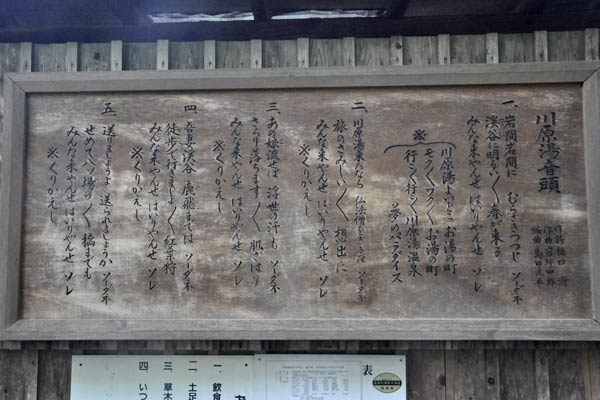 川原湯音頭
作曲 岩井四郎
編曲 島田逸平
一、岩間岩間に むらさきつつじ ソーダネ
渓谷に明るい〱春が来る
みんな来やんせ はいりやんせ ソレ
※
川原湯よいとこお湯の町
モク〱ワク〱お湯の町
行こ行こ川原湯温泉
夢のパラダイス
二、川原湯来たなら 仏法僧をききな ソーダネ
旅のさみしい〱想出に
みんな来やんせ はいりやんせ ソレ
※くりかえし
三、あの娘流せば 浮世の汗も ソーダネ
さらり落ちます〱肌ざはり
みんな来やんせ はいりやんせ ソレ
※くりかえし
四、吾妻渓谷 鹿飛までは ソーダネ
徒歩で行きましょ〱紅葉狩
みんな来やんせ はいりやんせ ソレ
※くりかえし
五、送りましょうよ 送られましょうか ソーダネ
せめて八ッ場の〱橋までも
みんな来やんせ はいりやんせ ソレ
※くりかえし
一、飲食
二、土足
三、草木
四、いつ
表